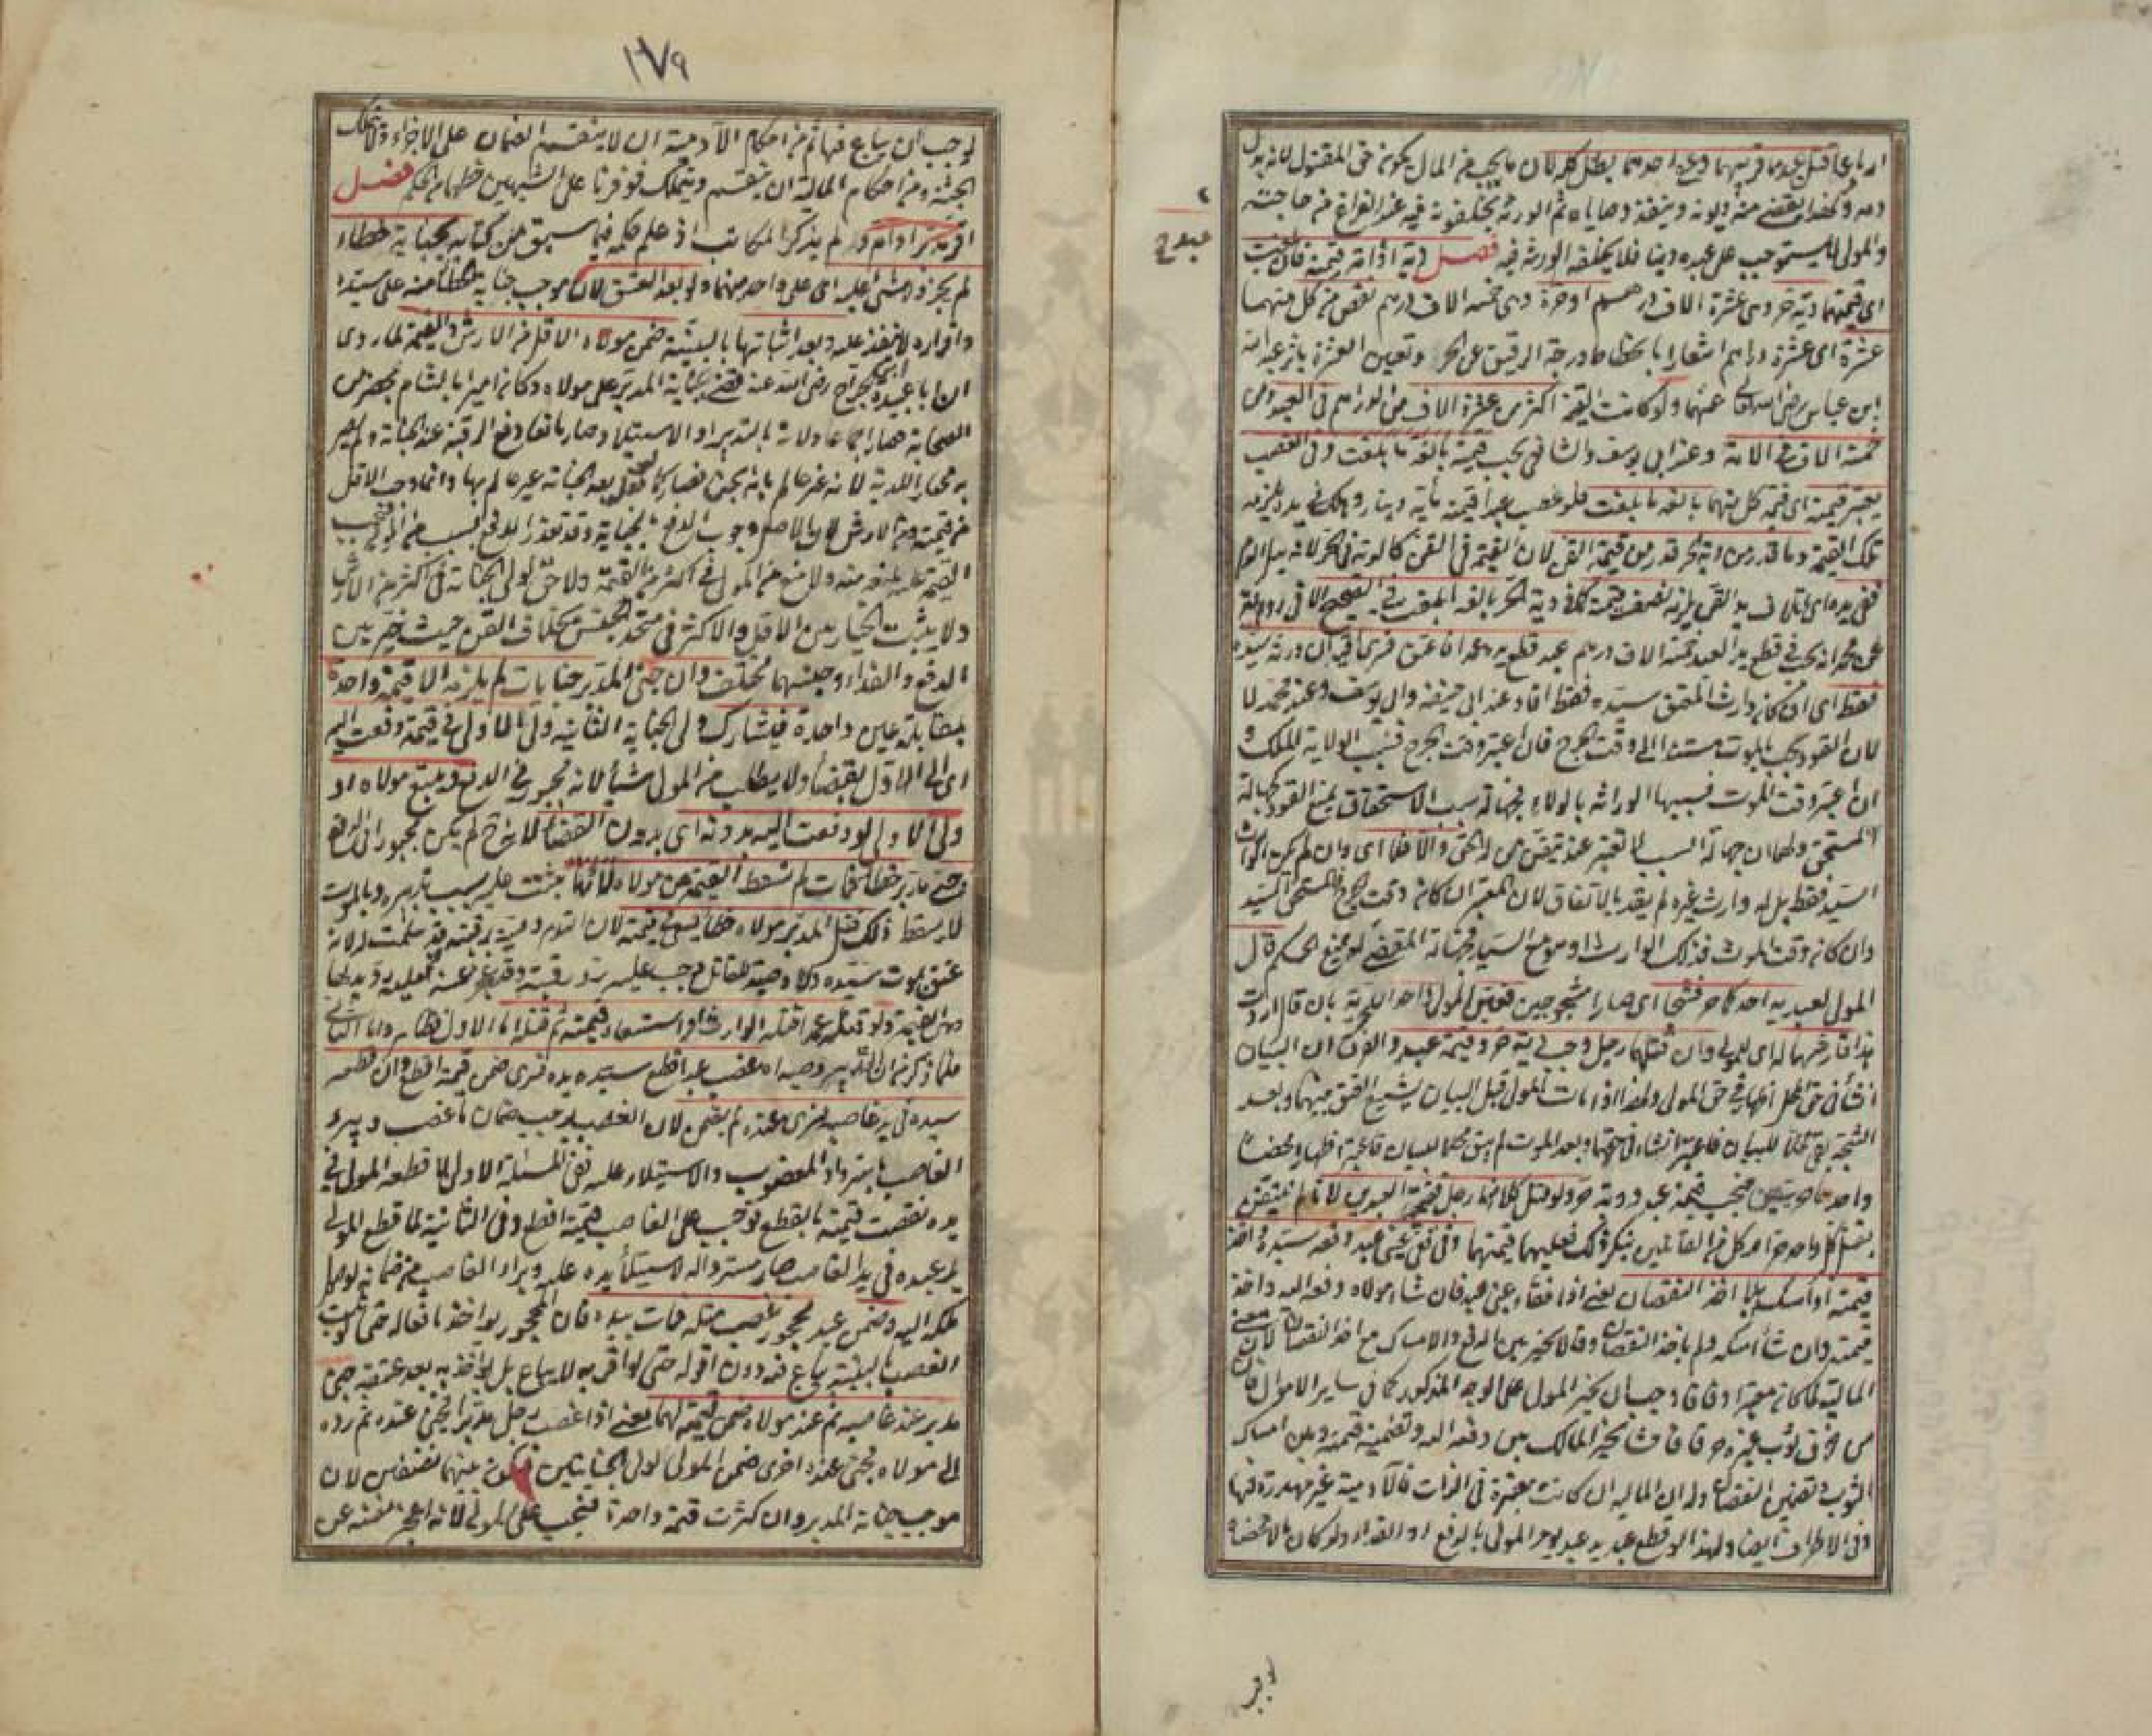 دمه ولهذا يقضى منه ديونه وينفذ وصاياه ثم الورثة يخلفونه فيه عند الفراغ من حاجته
والمولى لا يستوجب على عبده دينا فلا يخلفه الورثة فيه فصل دية
اى قيمتهما دية حر وهى عشرة الاف درهم او حرة وهى خمسة الاف درهم نقص من كل منهما
عشرة اى عشرة دراهم اشعارا بانحطاط درجة الرقيق عن الحر وتعيين العشرة باثر عبد الله
ابن عباس رضى الله تعالى عنهما ولو كانت القيمة اكثر من عشرة الاف من الدراهم فى العبد ومن
خمسة الاف فى الامة وعند ابى يوسف والشافعى يجب قيمته بالغة ما بلغت وفى الغصب
يعتبر قيمته اى قيمة كل منهما بالغة ما بلغت فلو غصب عبدا قيمته مائة دينار وهلك فى يده يلزمه
تلك القيمة وما قدر من دية الحر قدر من قيمة القن لان القيمة فى القن كالدية فى الحر لانه بدل الدم
ففى يده اى اتلاف يد القن يلزمه نصف قيمته كما فى دية الحر بالغة ما بلغت فى الصحيح الا فى رواية
عن محمد انه يجب فى قطع يد العبد خمسة الاف درهم عبد قطع يده عمدا فاعتق فسرى اقيد ان ورثه سيده
فقط اى ان كان وارث المعتق سيده فقط اقاد عند ابى حنيفة وابى يوسف وعند محمد لا
لان القود يجب بالموت مستندا الى وقت الجرح فان اعتبر وقت الجرح فسبب الولاية الملك و
ان اعتبر وقت الموت فسببها الوراثة بالولاء فجهالة سبب الاستحقاق يمنع القود كجهالة
المستحق ولهما ان جهالة السبب لا تعتبر عند تيقن من له الحق والا فلا اى وان لم يكن الوارث
السيد فقط بل له وارث غيره لم يقد بالاتفاق لان المعتبر ان كان وقت الجرح فالمستحق السيد
وان كان وقت الموت فذلك الوارث او هو مع السيد فجهالة المقضى له يمنع الحكم قال
المولى لعبديه احدكما حر فشجا اى صارا مشجوجين فعين المولى واحدا للحرية بان قال اردت
هذا فارشهما له اى للمولى وان قتلهما رجل وجب دية حر وقيمة عبد والفرق ان البيان
انشاء فى حق المحل اظهار فى حق المولى ولهذا اذا مات المولى قبل البيان يشيع العتق بينهما وبعد
الشجة بقى محلا للبيان فاعتبر انشاء فى حقهما وبعد الموت لم يبق محلا للبيان فاعتبر اظهارا محضا
واحدهما حر بيقين فيجب قيمة عبد ودية حر ولو قتل كلا منهما رجل فقيمة العبدين لانا لم نتيقن
قيمته او امسكه بلا اخذ النقصان يعنى اذا فقأ عينى عبد فان شاء مولاه دفعه اليه واخذ
قيمته وان شاء امسكه ولم ياخذ النقصان وقالا يخير بين الدفع والامساك مع اخذ النقصان لان معنى
المالية لما كان معتبرا وفاقا وجب ان يخير المولى على الوجه المذكور كما فى ساير الاموال فان
من خرق ثوب غيره خرقا فاحشا يخير المالك بين دفعه اليه وتضمينه قيمته وبين امساك
الثوب وتضمين النقصان وله ان المالية ان كانت معتبرة فى الذات فالآدمية غير مهدرة فيها
وفى الاطراف ايضا ولهذا لو قطع عبد يد عبد يومر المولى بالدفع او الفداء ولو كان مالا محضا
١٧٩
لوجب ان يباع فيها ثم من احكام الآدمية ان لا ينقسم الضمان على الاجزاء ولا يتملك
الجثة ومن احكام المالية ان ينقسم ويتملك فوفرنا على الشبهين حظهما من الحكم فصل
لم يذكر المكاتب اذ علم حكمه فيما سبق من كتابه بجناية خطاء
لم يجز ولا شئ عليه اى على واحد منهما ولو بعد العتق لان موجب جناية الخطأ منه على سيده
واقراره لا ينفذ عليه وبعد اثباتها بالبينة ضمن مولاه الاقل من الارش والقيمة لما روى
ان ابا عبيدة بن الجراح رضى الله عنه قضى بجناية المدبر على مولاه وكان اميرا بالشام بمحضر من
القيمة عليه دفعه منه ولا منع من المولى فى اكثر من القيمة ولا حق لولى الجناية فى اكثر من الارش
ولا يثبت الخيار بين الاقل والاكثر فى متحد الجنس بخلاف القن حيث خير بين
الدفع والفداء وجنسهما مختلف وان جنى المدبر جنايات لم يلزمه الا قيمة واحدة
بمقابلة عين واحدة فيشارك ولى الجناية الثانية ولى الاولى فى قيمة دفعت اليه
اى الى الاول بقضاء ولا يطالب من المولى شيأ لانه مجبور فى الدفع ويتبع مولاه او
ولى الاولى لو دفعت اليه بدونه اى بدون القضاء لانه ح لم يكن مجبورا فى الدفع
جنى مدبر خطأ فمات لم تسقط القيمة عن مولاه لانها يثبت عليه بسبب تدبيره وبالموت
لا يسقط ذلك قتل المدبر مولاه خطأ يسعى فى قيمته لان التدبير وصية برقبته وقد سلمت له لانه
عتق بموت سيده ولا وصية للقاتل فوجب عليه رد رقبته وقد عجز عنه فعليه رد بدلها
وهى القيمة ولو قتله عمدا قتله الوارث او استسعاه فى قيمته ثم قتله اما الاول فظاهر واما الثانى
فلما ذكر من ان التدبير وصية غصب عبدا قطع سيده يده فسرى ضمن قيمة اقطع وان قطعه
سيده فى يد غاصبه فسرى عنده لم يضمن لان الغصب يوجب ضمان ما غصب ويبرء
الغاصب باسترداد المغصوب والاستيلاء عليه ففى المسئلة الاولى لما قطعه المولى فى
يده نقصت قيمته بالقطع فوجب على الغاصب قيمة اقطع وفى الثانية لما قطع المولى
يد عبده فى يد الغاصب صار مستردا له لاستيلاء يده عليه وبراء الغاصب من ضمانه لوصول
ملكه اليه وضمن عبد محجور غصب مثله فمات بيده فان المحجور يواخذ بافعاله حتى لو ثبت
الغصب بالبينة يباع فيه دون اقواله حتى لو اقر به لا يباع بل يؤاخذ به بعد عتقه جنى
مدبر عند غاصبه ثم عند مولاه ضمن قيمته لهما يعنى اذا غصب رجل مدبرا فجنى عنده ثم رده
الى مولاه فجنى عنده اخرى ضمن المولى لولى الجنايتين فيكون بينهما نصفين لان
موجب جناية المدبر وان كثرت قيمة واحدة فيجب على المولى لانه اعجز نفسه عن